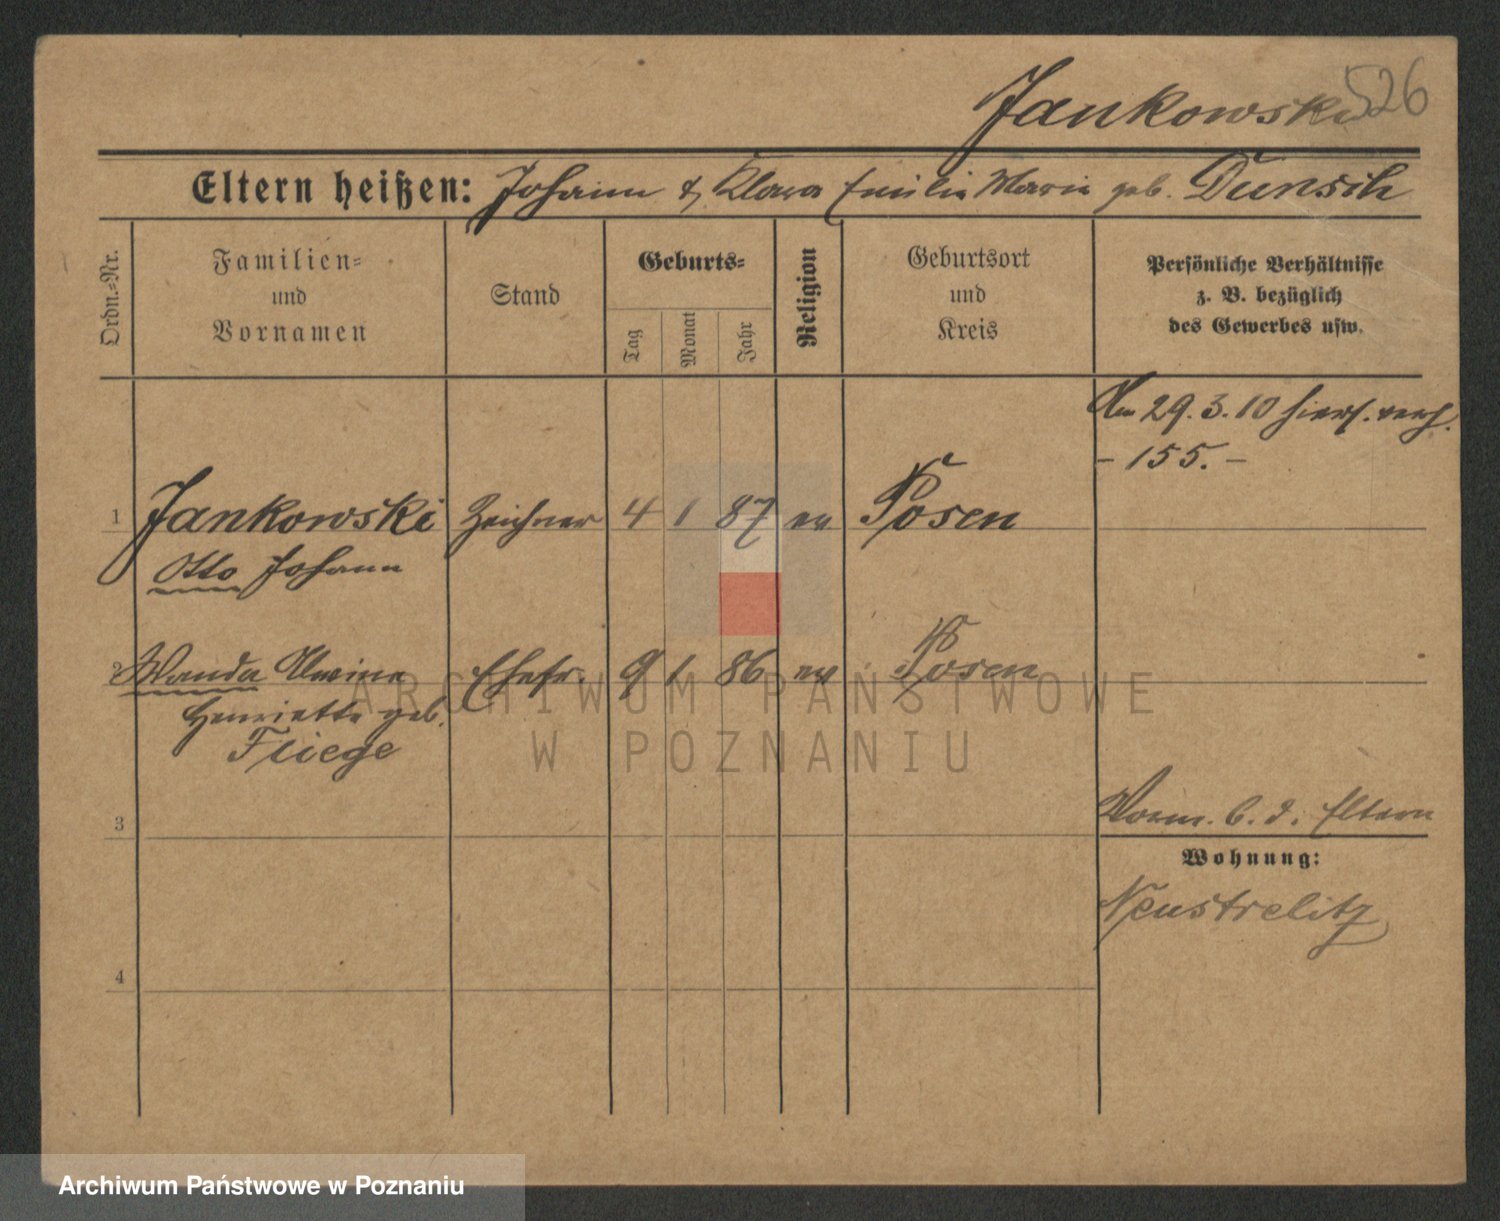 Jankowski 526
Eltern heißen: Johann & Klara Emilie Marie geb. Dunsch
Ordn.-Nr.
Familien-
und
Vornamen
Stand
Geburts-
Tag
Monat
Jahr
Religion
Geburtsort
und
Kreis
Persönliche Verhältnisse
z. B. bezüglich
des Gewerbes usw.
Am 29.3.10 hiers. verh.
- 155. -
1 Jankowski Zeichner 4 1 87 ev Posen
Otto Johann
2 Wanda Alwine Ehefr. 9 1 86 ev Posen
Henriette geb.
Fliege
3
Vorm. b. d. Eltern
Wohnung:
Neustrelitz
4
ARCHIWUM PAŃSTWOWE
W POZNANIU
Archiwum Państwowe w Poznaniu